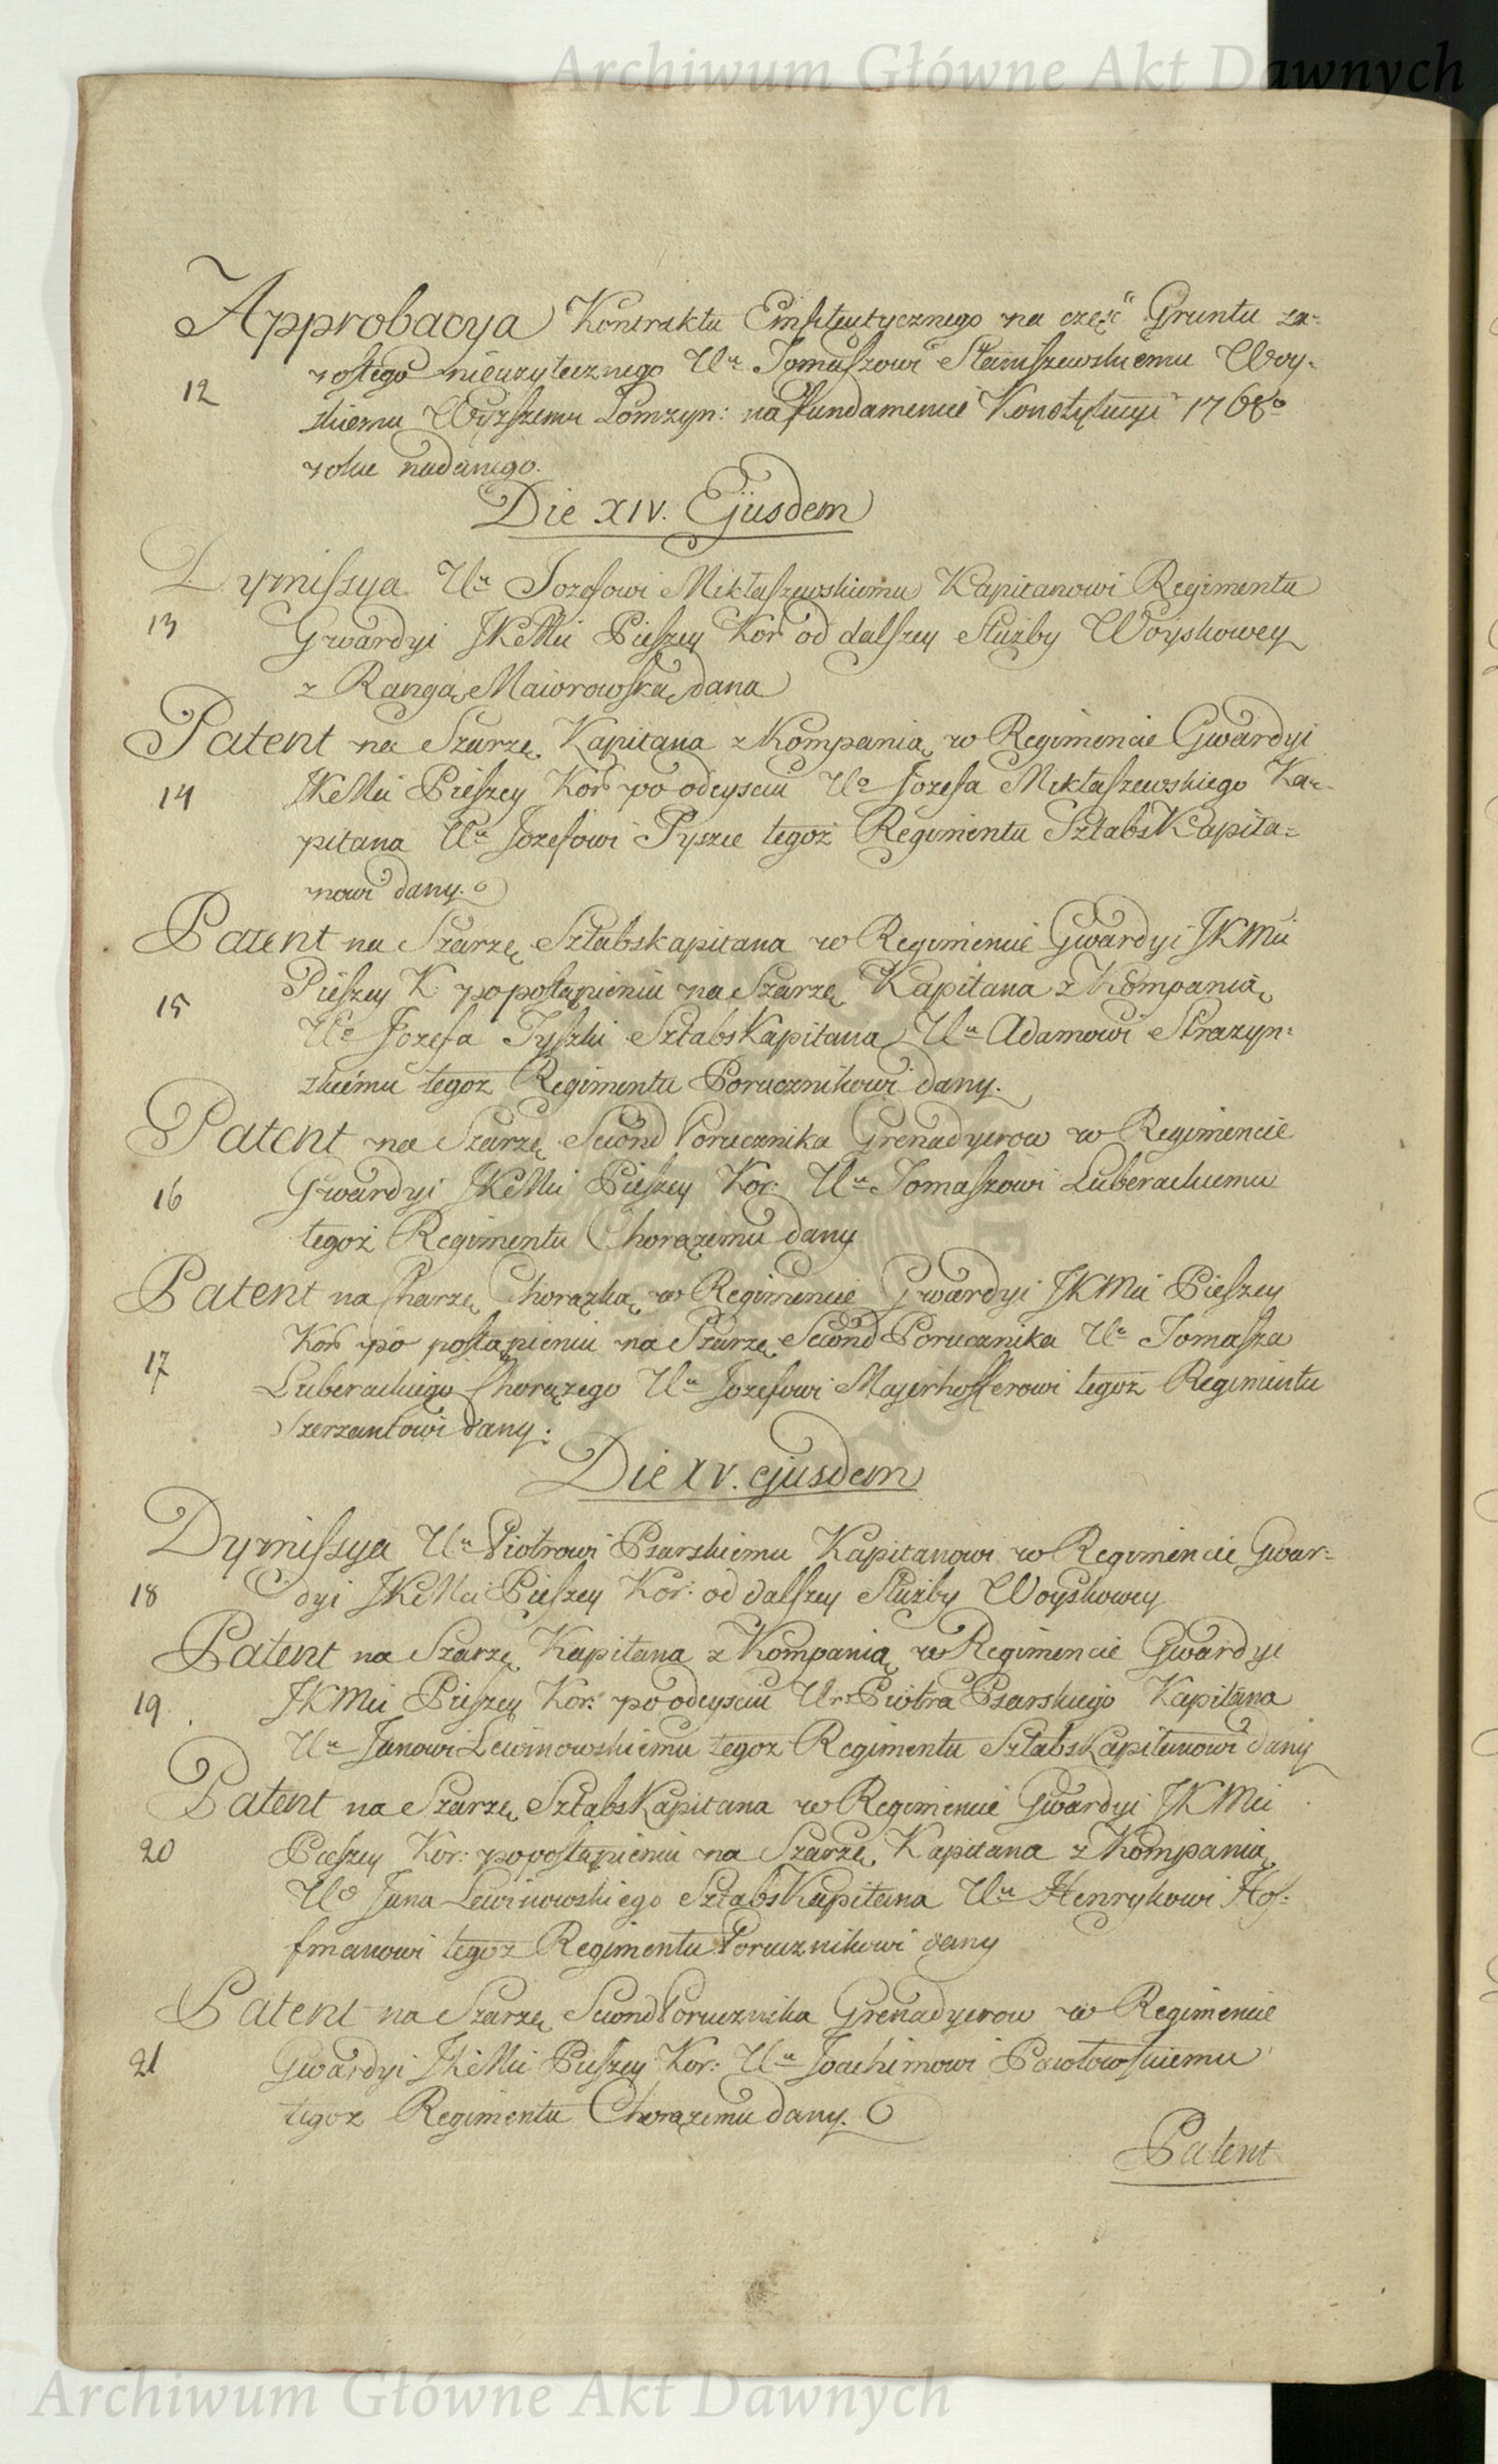 Archiwum Główne Akt Dawnych
Approbacya Kontraktu Emfiteutycznego na część Gruntu za-
rosłego nieużytecznego Ur Tomaszowi Staniszewskiemu Woy-
12
skiemu Wyższemu Łomżyn: na fundamencie Konstytucyi 1768o
roku nadanego.
Die XIV. Ejusdem
Dymissya Ur Jozefowi Mikłaszewskiemu Kapitanowi Regimentu
13
Gwardyi JKeMci Pieszey Kor od dalszey Służby Woyskowey
z Rangą Maiorowską dana
Patent na Szarzę Kapitana z Kompanią w Regimencie Gwardyi
14
JKeMci Pieszey Kor po odeysciu Uo Jozefa Mikłaszewskiego Ka-
pitana Ur Jozefowi Tyszce tegoż Regimentu SztabsKapita-
nowi dany.
Patent na Szarzę Sztabskapitana w Regimencie Gwardyi JKMci
15
Pieszey K: po postąpieniu na Szarzę Kapitana z Kompanią
Uo Jozefa Tyszki SztabsKapitana Ur Adamowi Strazyn-
skiemu tegoz Regimentu Porucznikowi dany.
Patent na Szarzę Second Porucznika Grenadyerow w Regimencie
16
Gwardyi JKeMci Pieszey Kor: Ur Tomaszowi Luberackiemu
tegoż Regimentu Chorążemu dany
Patent na Szarzę Chorążką w Regimencie Gwardyi JKMci Pieszey
Kor po postąpieniu na Szarzę Second Porucznika Uo Tomasza
17
Luberackiego Chorązego Ur Jozefowi Majerhofferowi tegoz Regimentu
Szerzantowi dany:
Die XV. ejusdem
Dymissya Ur Piotrowi Psarskiemu Kapitanowi w Regimencie Gwar-
18
dyi JKeMci Pieszey Kor: od dalszey Służby Woyskowey
Patent na Szarzę Kapitana z Kompanią w Regimencie Gwardyi
19
JKMci Pieszey Kor: po odeysciu Ur: Piotra Psarskiego Kapitana
Ur Janowi Lewinowskiemu tegoz Regimentu SztabsKapitanowi dany
Patent na Szarzę SztabsKapitana w Regimencie Gwardyi JKMci
20
Pieszey Kor: po postąpieniu na Szarzę Kapitana z Kompanią
Uo Jana Lewinowskiego SztabsKapitana Ur Henrykowi Hof-
fmanowi tegoz Regimentu Porucznikowi dany
Patent na Szarzę Second Porucznika Grenadyerow w Regimencie
21
Gwardyi JKeMci Pieszey Kor: Ur Joachimowi Pawłowskiemu
tegoz Regimentu Chorązemu dany.
Patent
Archiwum Główne Akt Dawnych